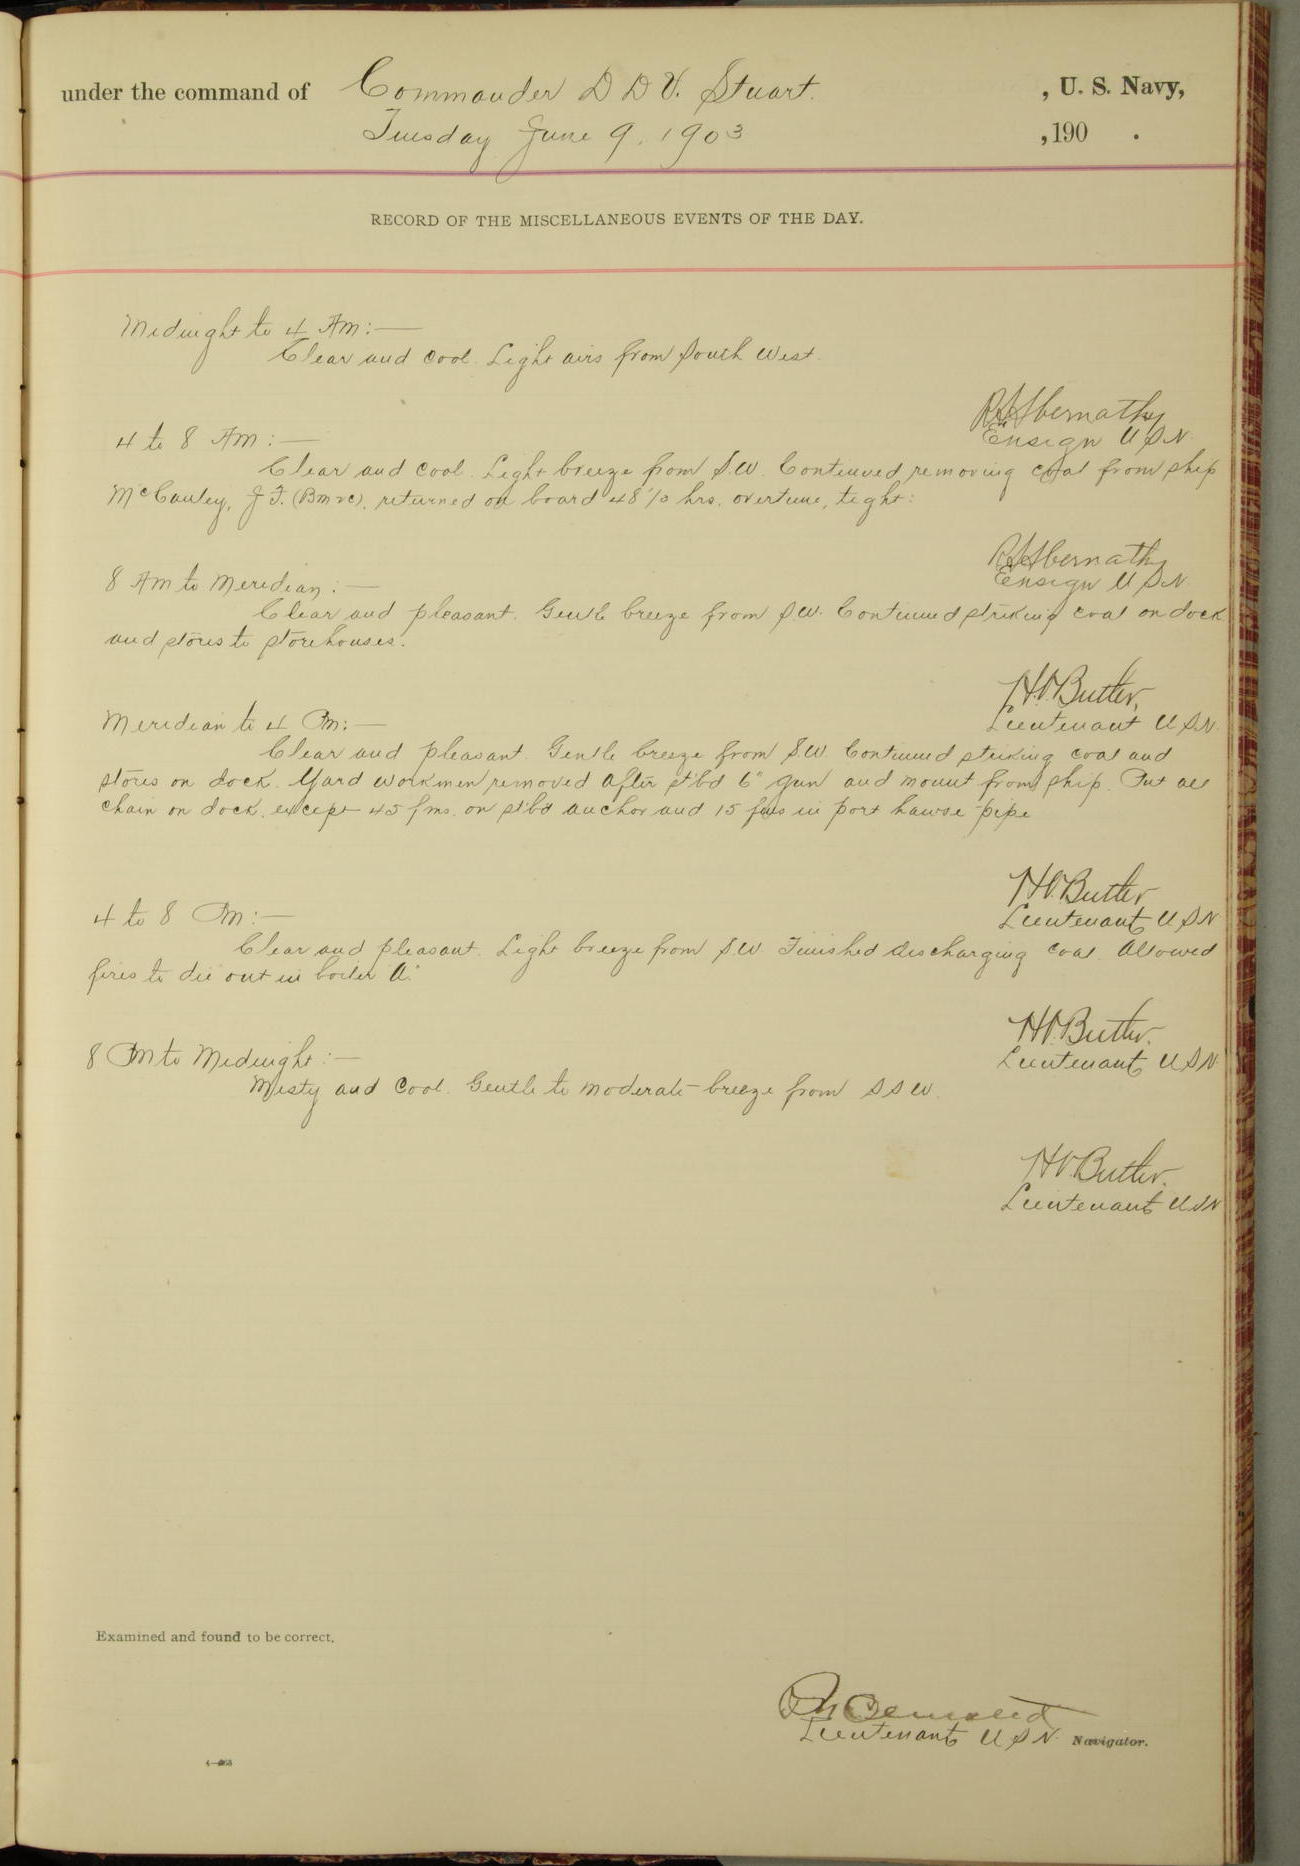 under the command of Commander D D V. Stuart. , U. S. Navy,
Tuesday June 9, 1903 , 190 .
RECORD OF THE MISCELLANEOUS EVENTS OF THE DAY.
Midnight to 4 Am:—
Clear and cool. Light airs from South West.
R S Abernathy
Ensign U S N.
4 to 8 Am:—
Clear and cool. Light breeze from S.W. Continued removing coal from ship
McCauley, J F. (Bm rc), returned on board 48 hrs. overtime, tight:
R S Abernathy
Ensign U S N.
8 Am to Meridian:—
Clear and pleasant. Gentle breeze from S.W. Continued striking coal on dock
and stores to storehouses.
H.V. Butler,
Lieutenant U S N.
Meridian to 4 Pm:—
Clear and pleasant. Gentle breeze from S.W. Continued striking coal and
stores on dock. Yard workmen removed after st'b'd 6" gun and mount from ship. Put all
chain on dock, except 45 fms. on st'b'd anchor and 15 fms in port hawse-pipe
H.V. Butler
Lieutenant U S N
4 to 8 Pm:—
Clear and pleasant. Light breeze from S.W. Finished discharging coal. Allowed
fires to die out in boiler A."
H.V. Butler.
Lieutenant U S N
8 Pm to Midnight:—
Misty and cool. Gentle to moderate breeze from S S W.
H.V. Butler.
Lieutenant U S N
Examined and found to be correct.
Lieutenant U S N. Navigator.